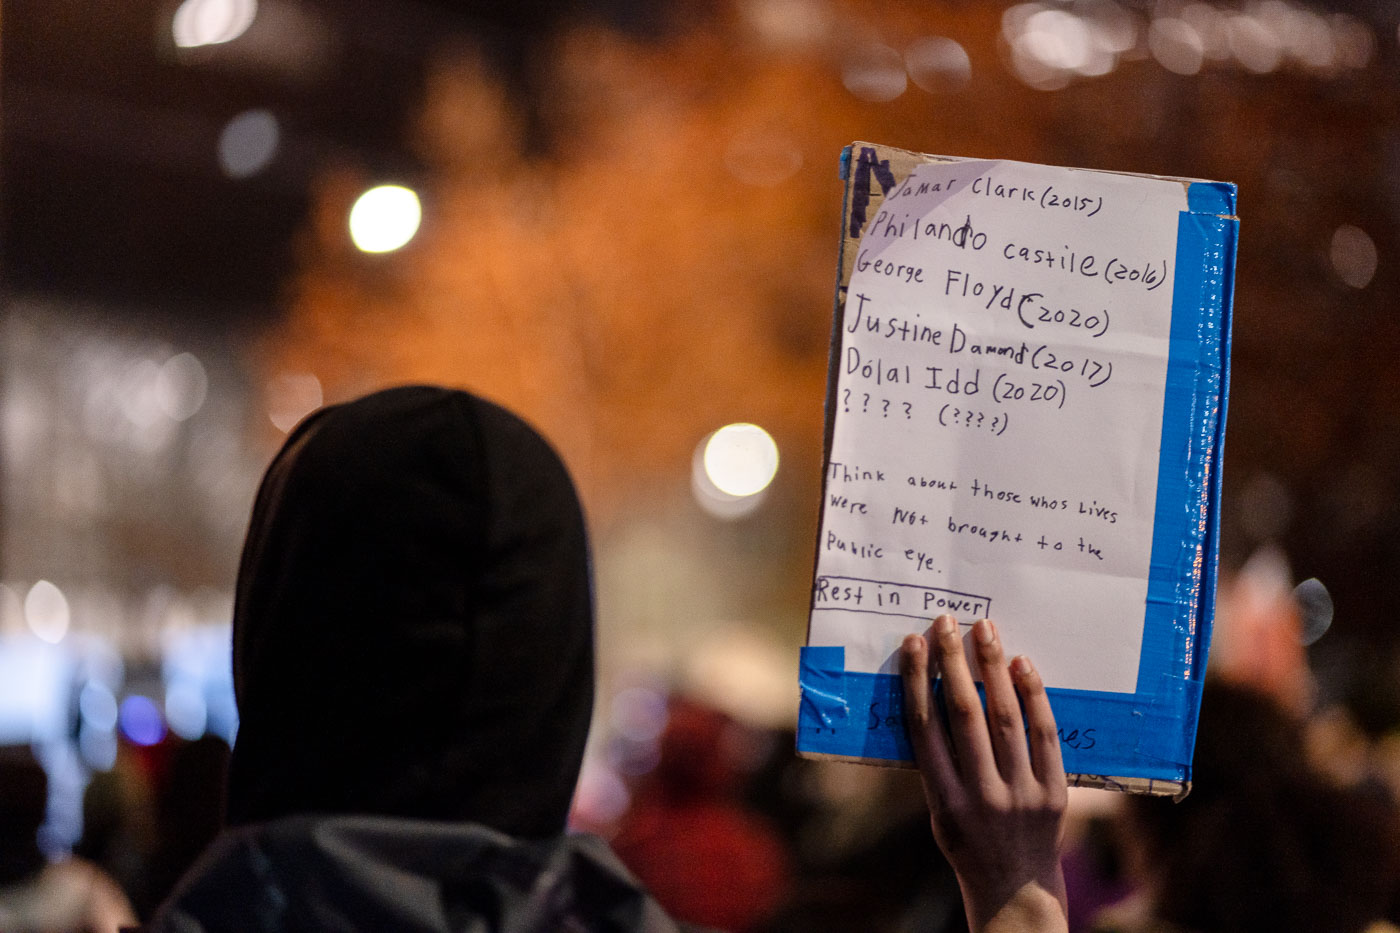 Jamar Clark (2015)
Philando castile (2016)
George Floyd (2020)
Justine Damond (2017)
Dolal Idd (2020)
? ? ? ? (????)
Think about those whos Lives
were Not brought to the
Public eye.
Rest in Power